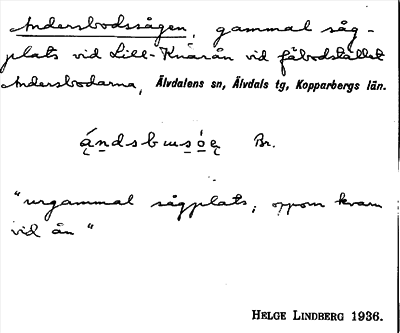 Andersbodssågen, gammal såg-
plats vid Lill-Knärån vid fäbodstället
Andersbodarna, Älvdalens sn, Älvdals tg, Kopparbergs län.
Br.
"urgammal sågplats, oppom kvarn
vid ån"
HELGE LINDBERG 1936.